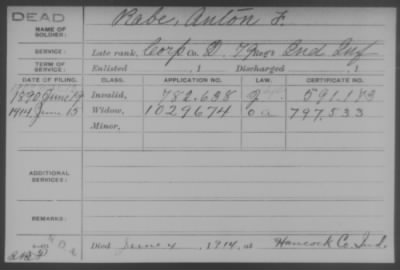 DEAD
NAME OF SOLDIER: Rabe, Anton F.
SERVICE: Late rank, Corp Co. D, 79 Reg't Ind Inf
TERM OF SERVICE: Enlisted , 1 Discharged , 1
DATE OF FILING. CLASS. APPLICATION NO. LAW. CERTIFICATE NO.
1890 June 19 Invalid, 782.638 591.183
1914 June 13 Widow, 1029674 797,533
Minor,
ADDITIONAL SERVICES:
REMARKS:
Died June 4, 1914, at Hancock Co. Ind.